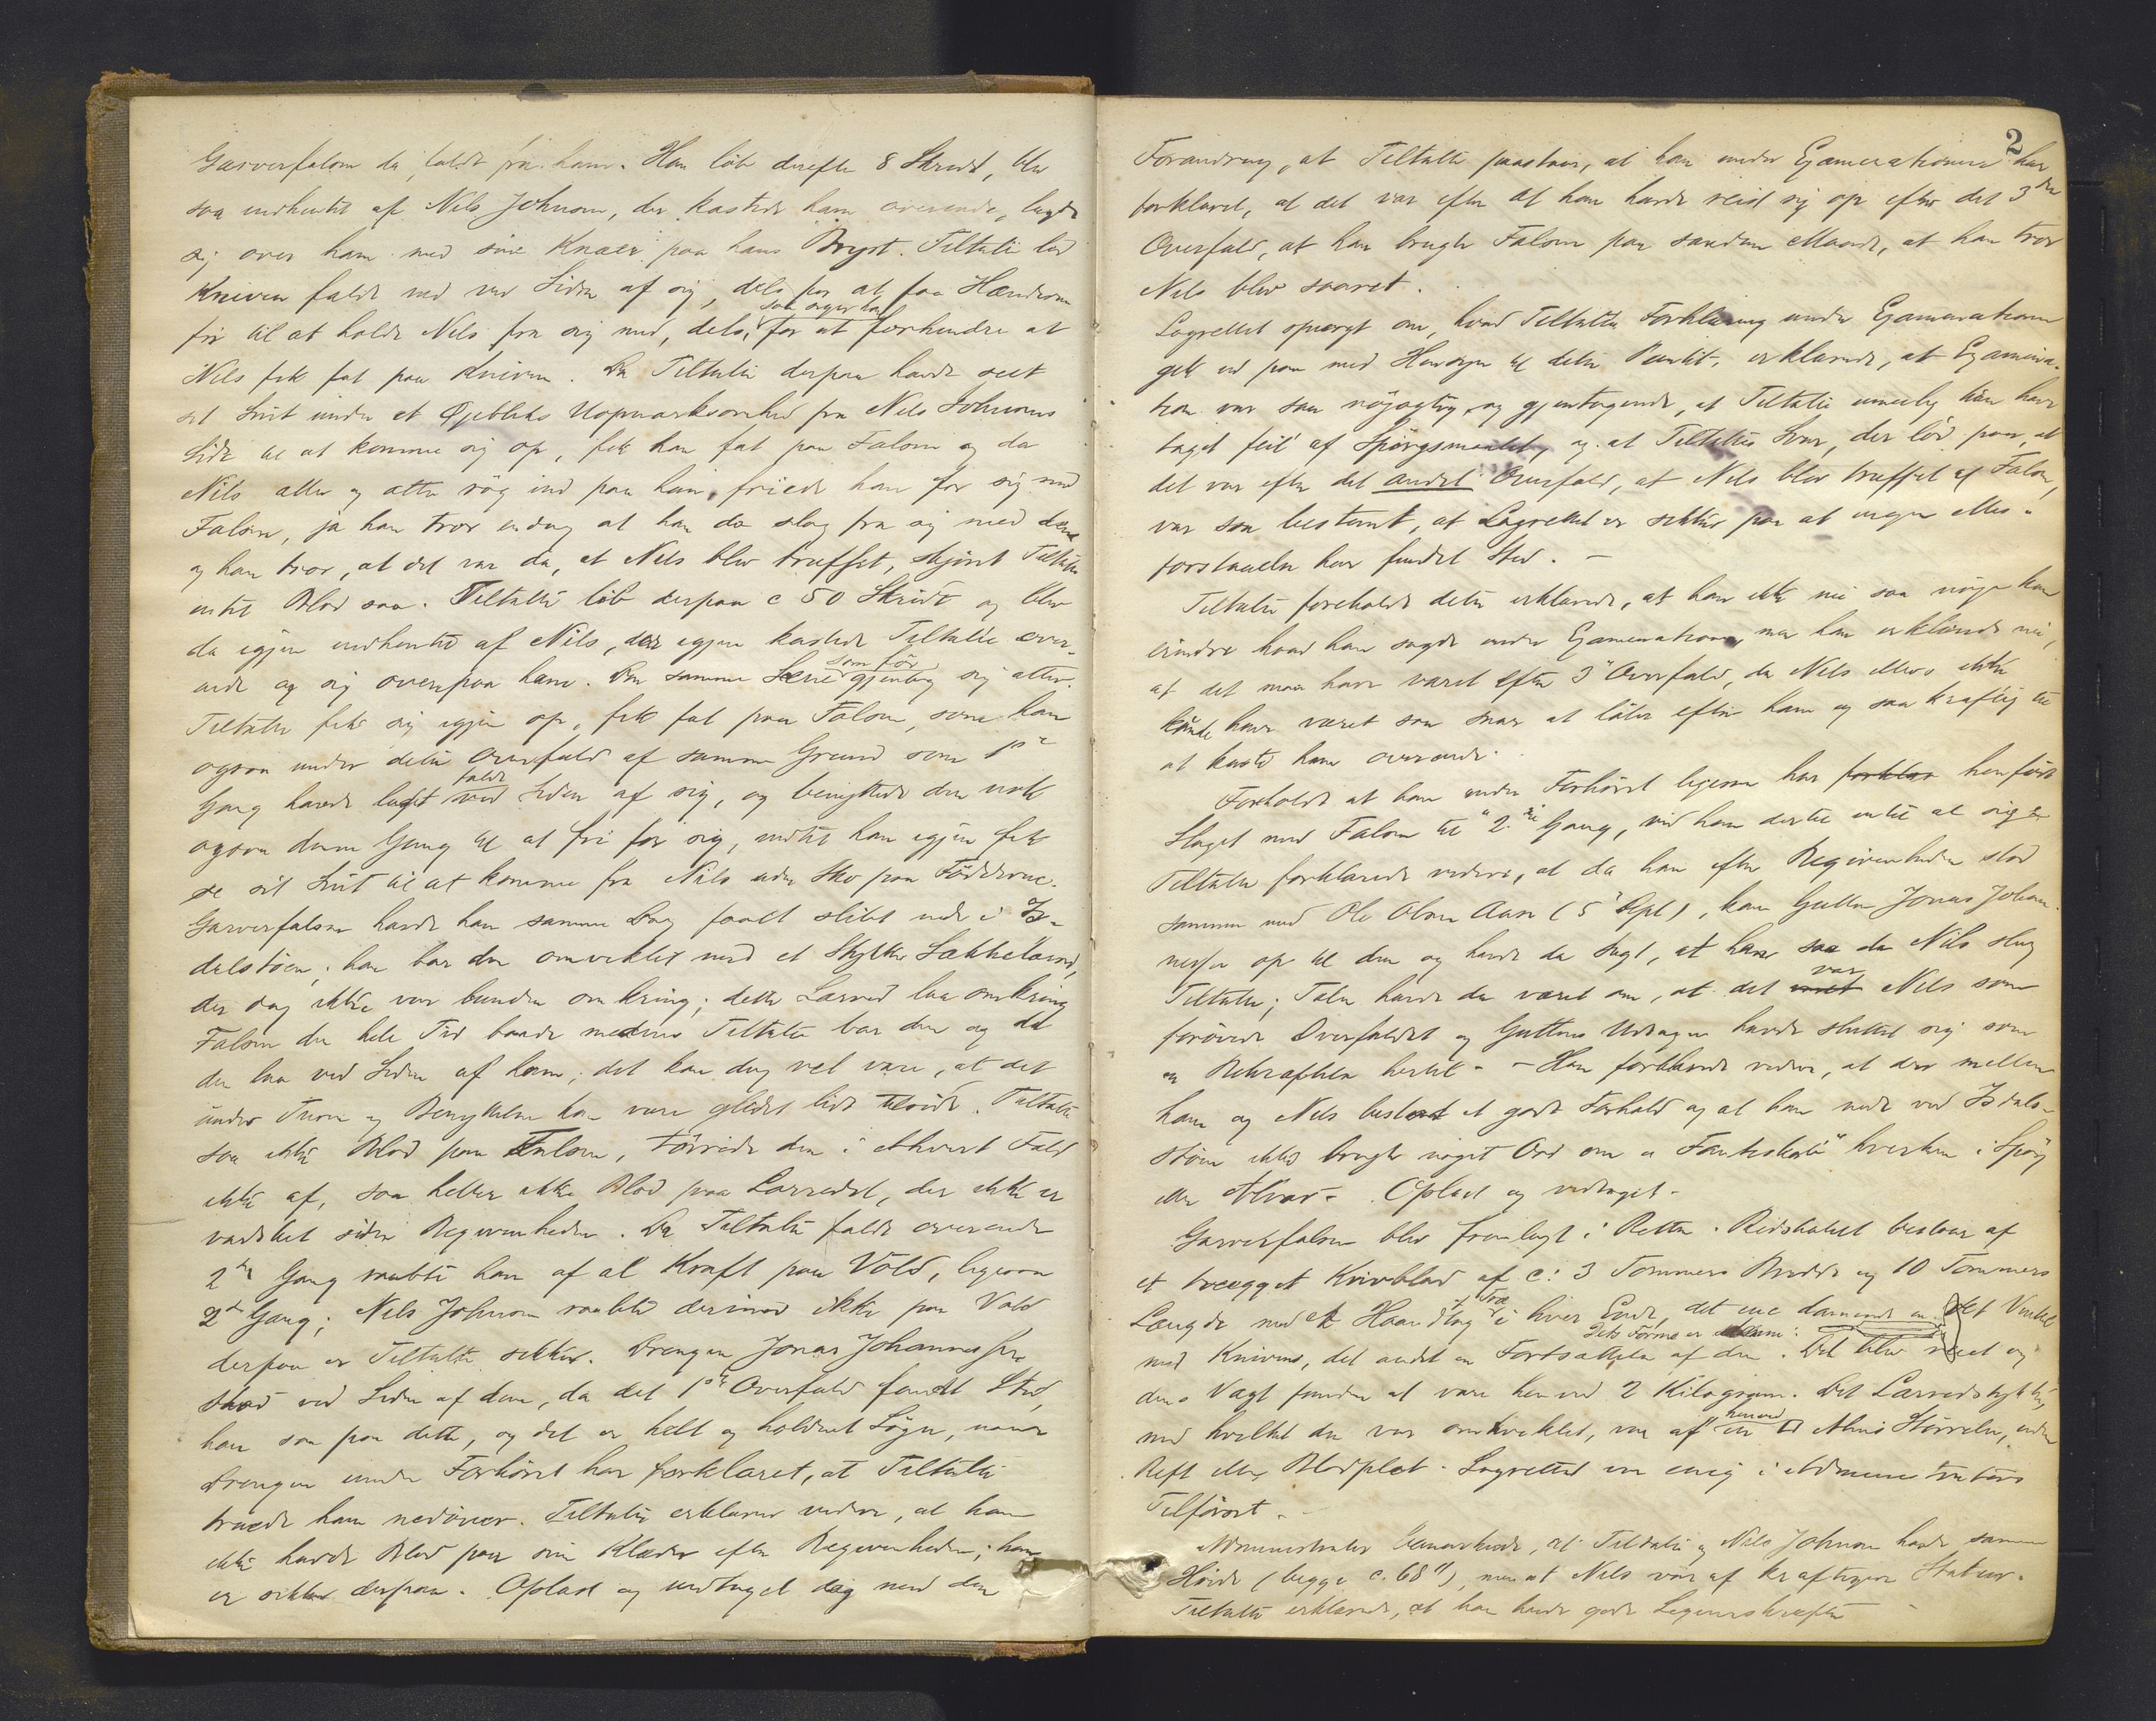 Garverfalsen da faldt fra ham. Han løb derefter 8 Skridt, blev
saa indhentet af Nils Johnsen, der kastede ham overende, lagde
sig over ham med sine Knæer paa hans Bryst. Tiltalte lod
Kniven falde ned ved Siden af sig, dels for at faa Hænderne
fri til at holde Nils fra sig med, dels, saa siger han, for at forhindre at
Nils fik fat paa Kniven. Da Tiltalte derpaa havde seet
sit Snit under et Øjebliks Uopmærksomhed fra Nils Johnsens
Side til at komme sig op, fik han fat paa Falsen og da
Nils atter og atter røg ind paa ham, friede han for sig med
Falsen, ja han tror endog at han da slog fra sig med den
og han tror, at det var da, at Nils blev truffet, skjønt Tiltalte
intet Blod saa. Tiltalte løb derpaa c 50 Skridt og blev
da igjen indhentet af Nils, der igjen kastede Tiltalte over-
ende og sig ovenpaa ham. Den samme Scene som før gjentog sig atter.
Tiltalte fik sig igjen op, fik fat paa Falsen, som han
ogsaa under dette Overfald af samme Grund som 1ste
Gang havde ladet falde ved Siden af sig, og benyttede den nok
ogsaa denne Gang til at fri for sig, indtil han igjen fik
se sit Snit til at komme fra Nils uden Sko paa Fødderne.
Garverfalsen havde han samme Dag faaet slibt nede i Is-
dalstøen; han bar den omviklet med et Stykke Sækkelærred,
der dog ikke var bunden omkring; dette Lærred laa omkring
Falsen den hele Tid baade medens Tiltalte bar den og da
den laa ved Siden af ham; det kan dog vel være, at det
under Turen og Benyttelsen kan være gledet lidt tilside. Tiltalte
saa ikke Blod paa Falsen, tørrede den i ethvert Fald
ikke af, saa heller ikke Blod paa Lærredet, der ikke er
vadsket siden Begivenheden. Da Tiltalte faldt overende
2den Gang raabte han af al Kraft paa Vold, ligesaa
3die Gang; Nils Johnsen raabte derimod ikke paa Vold
derpaa er Tiltalte sikker. Drengen Jonas Johannessen
stod ved Siden af dem, da det 1ste Overfald fandt Sted,
han saa paa dette, og det er helt og holdent Løgn, naar
Drengen under Forhøret har forklaret, at Tiltalte
truede ham nedover. Tiltalte erklærer videre, at han
ikke havde Blod paa sine Klæder efter Begivenheden; han
er sikker derpaa. Oplæst og vedtaget dog med den
2
Forandring, at Tiltalte paastaar, at han under Examinationen har
forklaret, at det var efter at han havde reist sig op efter det 3die
Overfald, at han brugte Falsen paa saadan Maade, at han tror
Nils blev saaret.
Lagrettet spurgt om, hvad Tiltaltes Forklaring under Examinationen
gik ud paa med Hensyn til dette Punkt, erklærede, at Examina-
tion var saa nøiagtig og gjentagende, at Tiltalte umulig kan have
taget feil af Spørgsmaalet, og at Tiltaltes Svar, der lød paa, at
det var efter det andet Overfald, at Nils blev truffet af Falsen,
var saa bestemt, at Lagrettet er sikker paa at ingen Mis-
forstaaelse har fundet Sted. –
Tiltalte foreholdt dette erklærede, at han ikke nu saa nøie kan
erindre hvad han sagde under Examinationen, men han erklærede nu,
at det maa have været efter 3die Overfald, da Nils ellers ikke
kunde have været saa snar at løbe efter ham og saa kraftig til
at kaste ham overende.
Foreholdt at han under Forhøret ligesaa har henført
Slaget med Falsen til 2den Gang, ved han dertil intet at sige
Tiltalte forklarede videre, at da han efter Begivenheden stod
sammen med Ole Olsen Aase (5te Sept), kom Gutten Jonas Johan-
nessen op til dem og havde da sagt, at han saa da Nils slog
Tiltalte; Talen havde da været om, at det var Nils som
forøvede Overfaldet og Guttens Udsagn havde sluttet sig som
en Bekræftelse hertil. – Han forklarede videre, at der mellem
ham og Nils bestod et godt Forhold og at han nede ved Isdals-
støen ikke brugte noget Ord om "Fanteskab" hverken i Spøg
eller Alvor. Oplæst og vedtaget.
Garverfalsen blev fremlagt i Retten. Redskabet bestaar af
et tveegget Knivblad af c: 3 Tommers Bredde og 10 Tommers
Længde med et Haandtag af Træ i hver Ende, det ene dannende en ret Vinkel
med Kniven, det andet en Fortsættelse af den. Dets Form er Det blev veiet og
dens Vægt funden at være henved 2 Kilogram. Det Lærredsstykke,
med hvilket den var omviklet, var af henved en ☐ Alens Størrelse, uden
Rift eller Blodplet. Lagrettet var enig i Administrators
Tilførsel.
Administrator bemærkede, at Tiltalte og Nils Johnsen havde samme
Høide (begge c. 68"), men at Nils var af kraftigere Statur.
Tiltalte erklærede, at han havde gode Legemskræfter